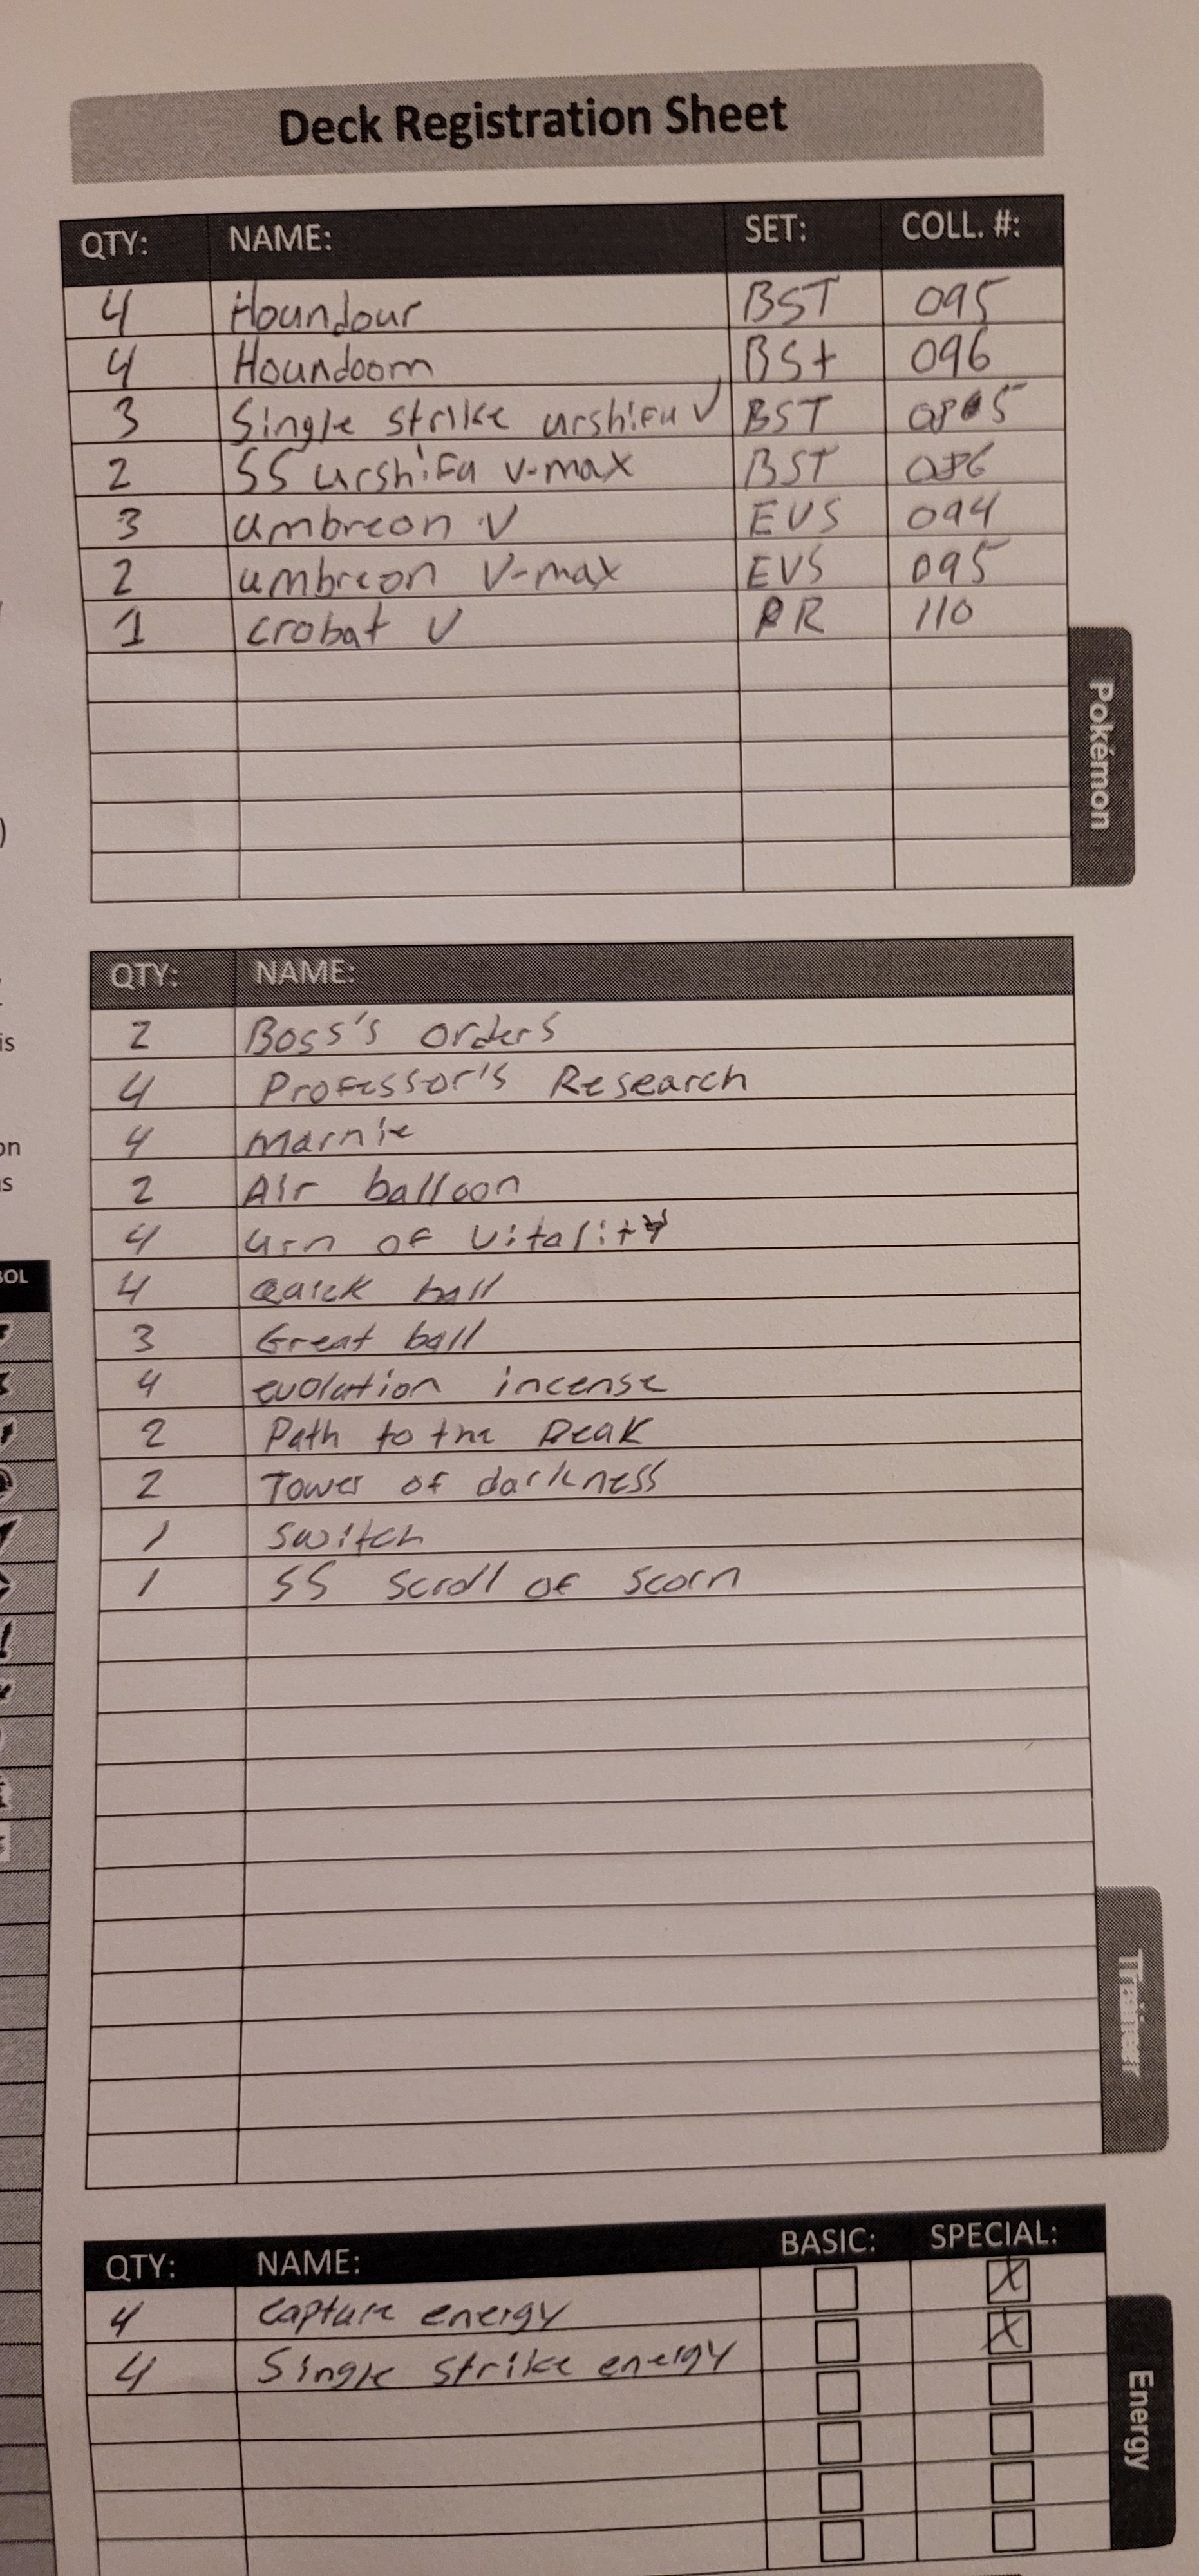 Deck Registration Sheet
QTY: NAME: SET: COLL. #:
4 Houndour BST 095
4 Houndoom BSt 096
3 Single strike urshifu V BST 085
2 SS urshifu v-max BST 086
3 umbreon V EVS 094
2 umbreon V-max EVS 095
1 crobat V PR 110
Pokémon
QTY: NAME:
2 Boss's orders
4 Professor's Research
4 marnie
2 Air balloon
4 urn of vitality
4 Quick ball
3 Great ball
4 evolution incense
2 Path to the Peak
2 Tower of darkness
1 switch
1 SS scroll of scorn
Trainer
QTY: NAME: BASIC: SPECIAL:
4 capture energy X
4 Single strike energy X
Energy
)
is
on
s
BOL